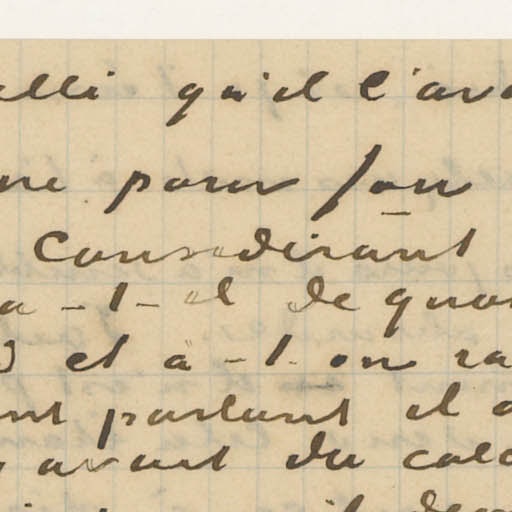 elli qu'il l'av
ne pour son
Considirant
a-t-il de quo
et a-t-on ra
ent partant il
avant du calc